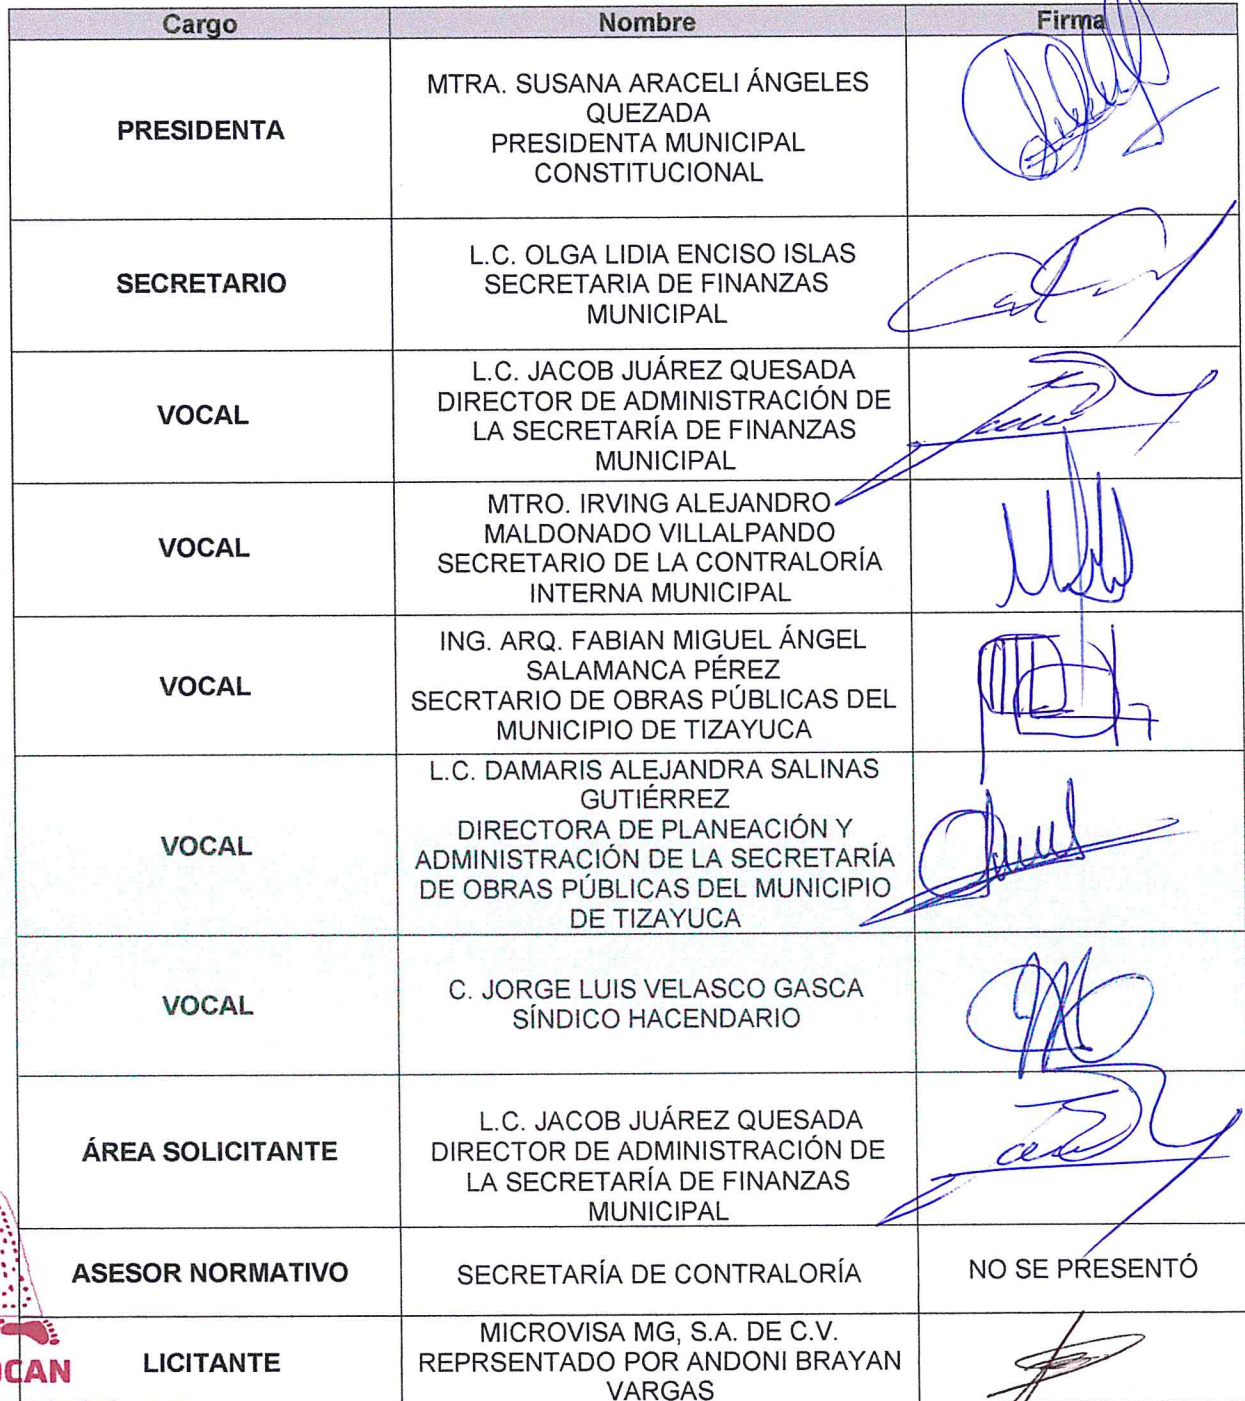 Cargo Nombre Firma
PRESIDENTA
MTRA. SUSANA ARACELI ÁNGELES
QUEZADA
PRESIDENTA MUNICIPAL
CONSTITUCIONAL
SECRETARIO
L.C. OLGA LIDIA ENCISO ISLAS
SECRETARIA DE FINANZAS
MUNICIPAL
VOCAL
L.C. JACOB JUÁREZ QUESADA
DIRECTOR DE ADMINISTRACIÓN DE
LA SECRETARÍA DE FINANZAS
MUNICIPAL
VOCAL
MTRO. IRVING ALEJANDRO
MALDONADO VILLALPANDO
SECRETARIO DE LA CONTRALORÍA
INTERNA MUNICIPAL
VOCAL
ING. ARQ. FABIAN MIGUEL ÁNGEL
SALAMANCA PÉREZ
SECRTARIO DE OBRAS PÚBLICAS DEL
MUNICIPIO DE TIZAYUCA
VOCAL
L.C. DAMARIS ALEJANDRA SALINAS
GUTIÉRREZ
DIRECTORA DE PLANEACIÓN Y
ADMINISTRACIÓN DE LA SECRETARÍA
DE OBRAS PÚBLICAS DEL MUNICIPIO
DE TIZAYUCA
VOCAL
C. JORGE LUIS VELASCO GASCA
SÍNDICO HACENDARIO
ÁREA SOLICITANTE
L.C. JACOB JUÁREZ QUESADA
DIRECTOR DE ADMINISTRACIÓN DE
LA SECRETARÍA DE FINANZAS
MUNICIPAL
ASESOR NORMATIVO
SECRETARÍA DE CONTRALORÍA
NO SE PRESENTÓ
LICITANTE
MICROVISA MG, S.A. DE C.V.
REPRSENTADO POR ANDONI BRAYAN
VARGAS